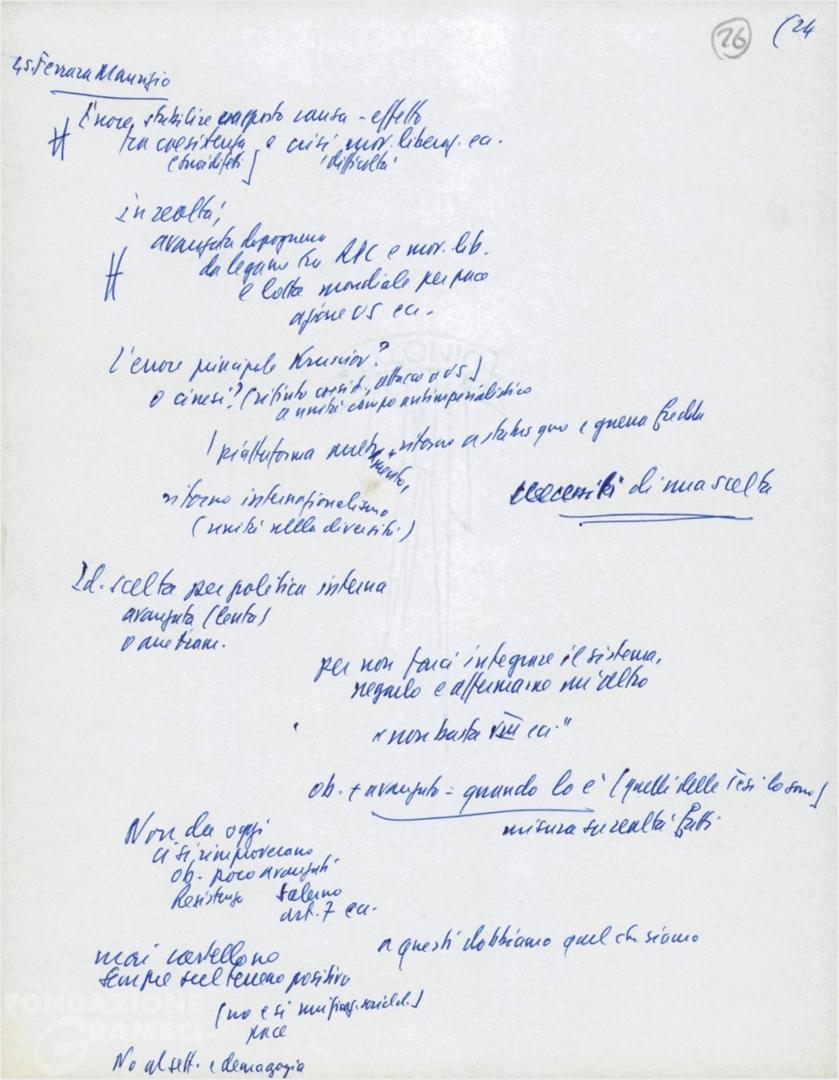 26 (24
45. Ferrara Maurizio
Errore, stabilire rapporto causa - effetto
tra coesistenza e crisi mov. liberaz. ec.
e "difficoltà"
in realtà,
avanzata dopoguerra
da legame tra RPC e mov. lib.
e lotta mondiale per pace
azione US ec.
L'errore principale Krusciov?
o cinesi? (rifiuto coesist., attacco a US)
a unità campo antimperialistico
piattaforma
ritorno a status quo e guerra fredda
ritorno internazionalismo
(unità nella diversità)
necessità di una scelta
Id. scelta per politica interna
avanzata (lenta)
o arretram.
per non farci integrare il sistema,
negarlo e affermarne un'altro
"non basta VIII ec."
ob. + avanzato = quando lo è (quelli delle Tesi lo sono)
misura su realtà fatti
Non da oggi
ci si rimproverano
ob. poco avanzati
Resistenza Salerno
art. 7 ec.
a questi dobbiamo quel che siamo
mai
sempre sul terreno positivo
(no e sì unificaz. sociald.)
pace
No al sett. e demagogia
FONDAZIONE
GRAMSCI